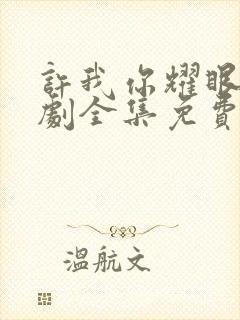 許我你耀眼
劇全集免費
溫航文